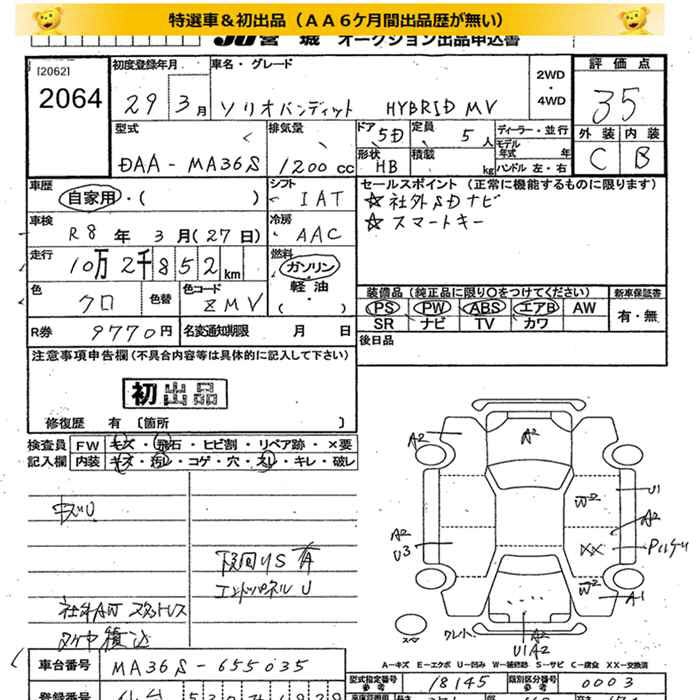 特選車＆初出品（ＡＡ６ケ月間出品歴が無い）
JU宮城 オークション出品申込書
[2062]
2064
初度登録年月
29 3月
車名・グレード
ソリオバンディット HYBRID MV
2WD・4WD
評価点
35
外装 内装
C B
型式
DAA-MA36S
排気量
1200 cc
ドア 5D
定員 5人
形状 HB
積載 kg
ディーラー・並行
モデル年式 年
ハンドル 左・右
車歴
自家用・( )
シフト
IAT
セールスポイント（正常に機能するものに限ります）
☆社外SDナビ
☆スマートキー
車検
R8年3月(27日)
冷房
AAC
走行
10万2千852km
燃料
ガソリン
軽油
・( )
色
クロ
色替
色コード
ZMV
装備品（純正品に限り○をつけてください）
PS PW ABS エアB AW
SR ナビ TV カワ
新車保証書
有・無
R券
9770円
名変通知期限 月 日
後日品
注意事項申告欄(不具合内容等は具体的に記入して下さい)
初出品
修復歴 有〔箇所 〕
検査員記入欄
FW キズ・飛石・ヒビ割・リペア跡・×要
内装 キズ・汚レ・コゲ・穴・スレ・キレ・破レ
キズU
下回りS
エンドパネル U
社外AW スタットレス
タイヤ積込
A2
A2
U1
W2
A2
A2
U3
XX
W2
A1
A2
U1A2
スペア
A－キズ E－エクボ U－凹み W－補修跡 S－サビ C－腐食 XX－交換済
車台番号
MA36S-655035
型式指定番号
参考
18145
類別区分番号
参考
0003
登録番号